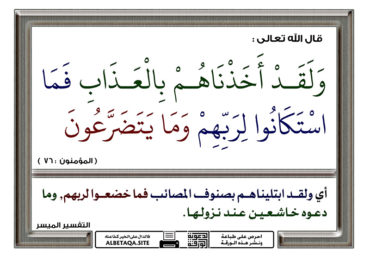 قال الله تعالى :
وَلَقَدْ أَخَذْنَاهُمْ بِالْعَذَابِ فَمَا
اسْتَكَانُوا لِرَبِّهِمْ وَمَا يَتَضَرَّعُونَ
( المؤمنون : ٧٦ )
أي ولقد ابتليناهم بصنوف المصائب فما خضعوا لربهم, وما
دعوه خاشعين عند نزولها.
التفسير الميسر
احرص على طباعة
ونشر هذه الورقة
فالدال على الخير كفاعله
ALBETAQA.SITE